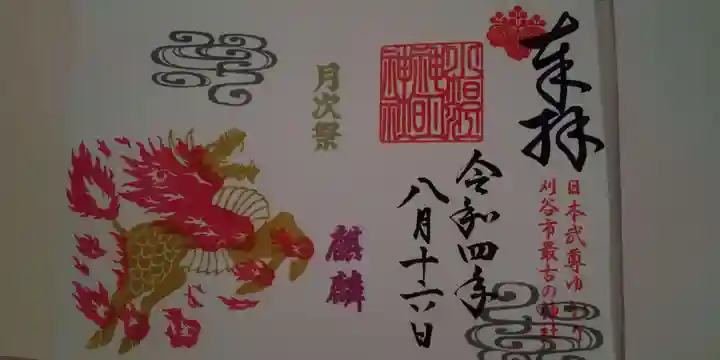 奉拝
日本武尊ゆかり
刈谷市最古の神社
令和四年
八月十六日
月次祭
麒麟